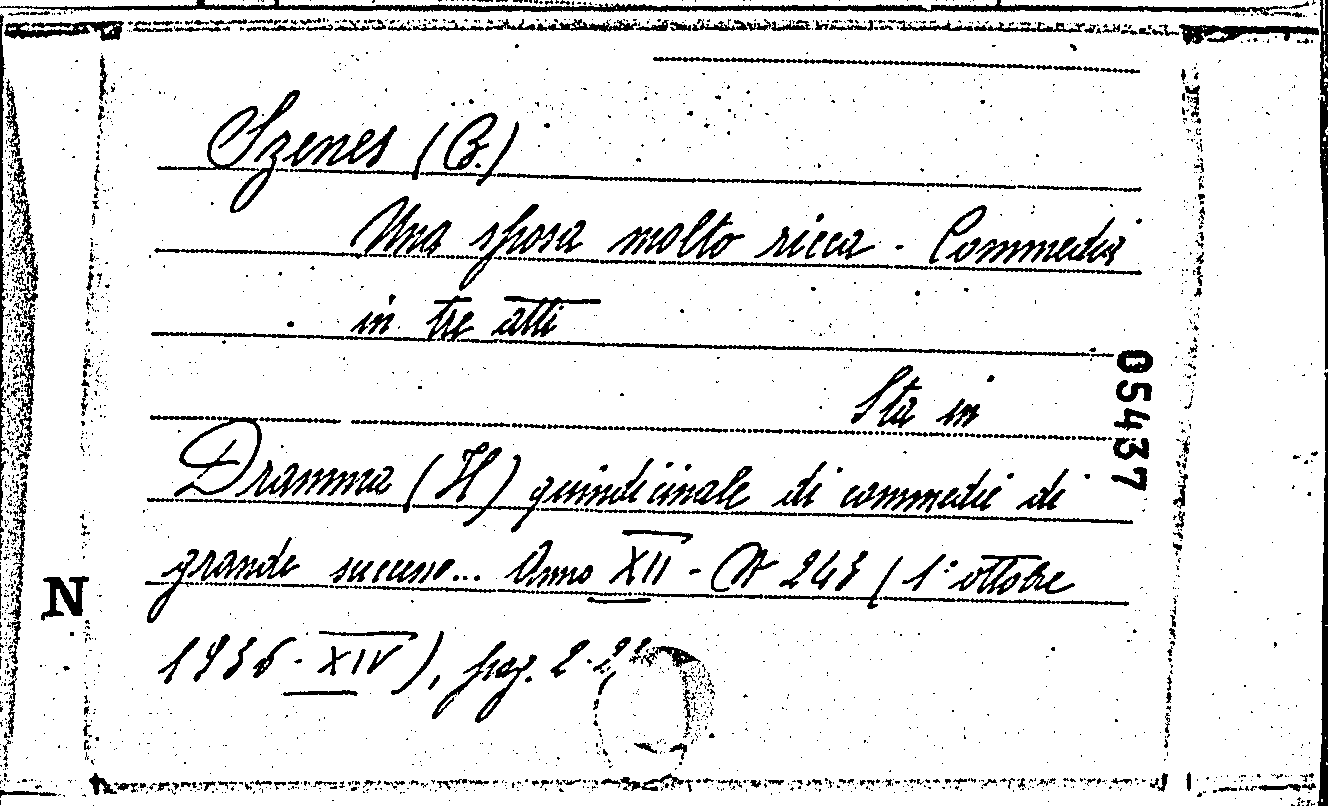 Szenes (B.)
Una sposa molto ricca - Commedia
in tre atti
Sta in
05437
Dramma (Il) quindicinale di commedie di
grande successo... Anno XII - N 243 (1° ottobre
N
1936-XIV), pag. 2-